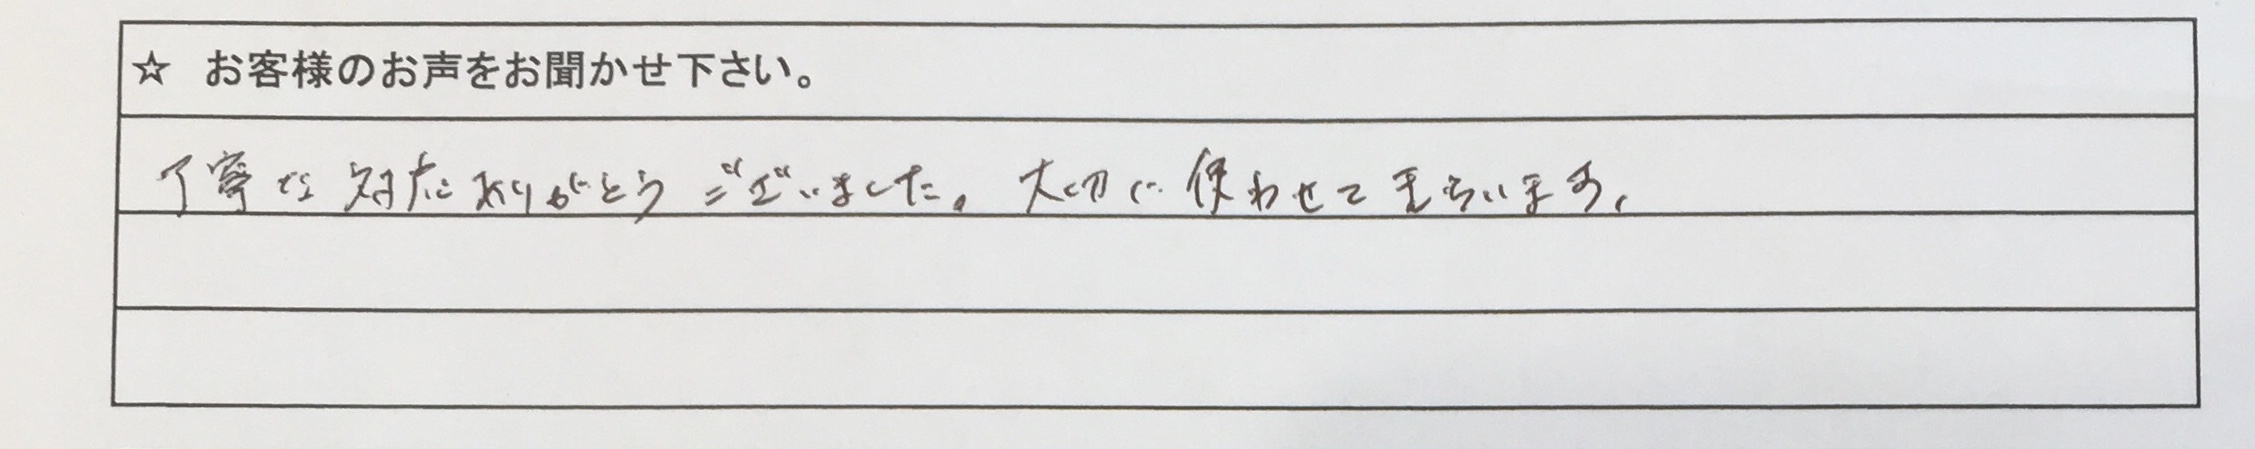 ☆ お客様のお声をお聞かせ下さい。
丁寧な対応ありがとうございました。大切に使わせてもらいます。